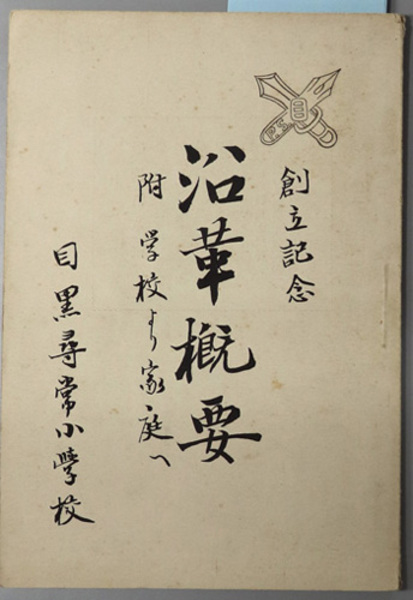 創立記念
沿革概要
附学校より家庭へ
目黒尋常小學校
目
P.S.